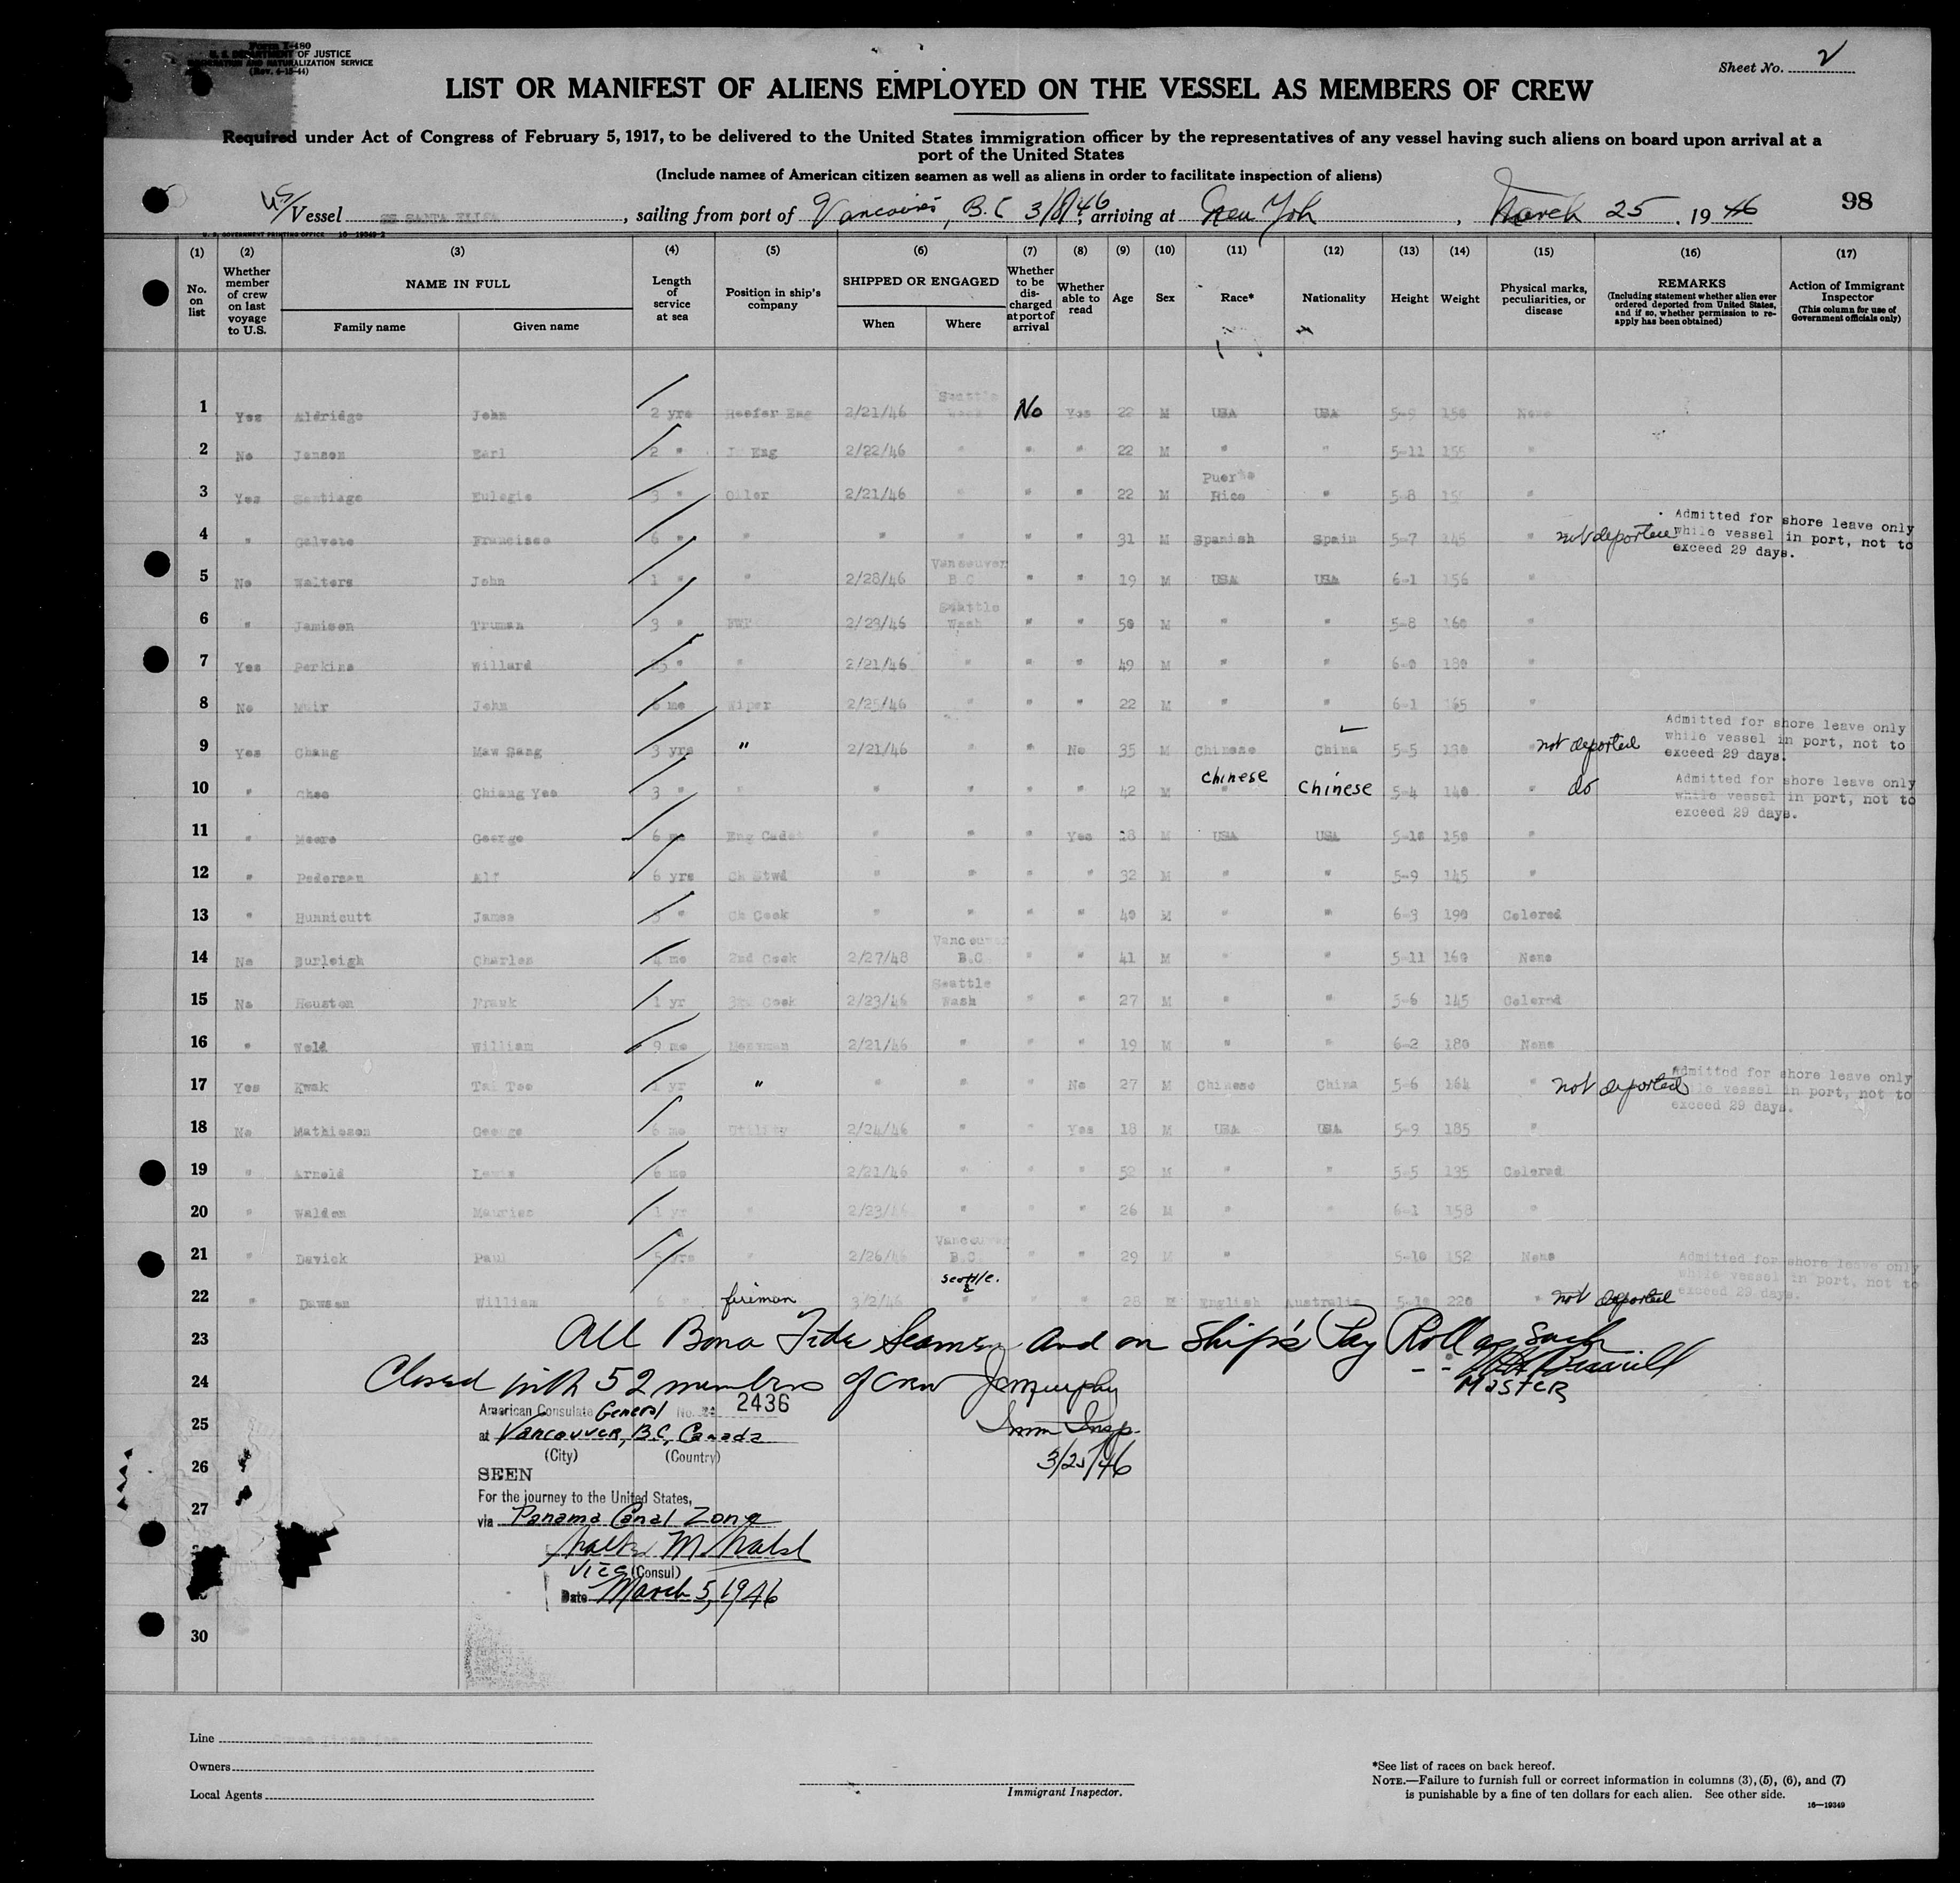 Form I-480
U. S. DEPARTMENT OF JUSTICE
IMMIGRATION AND NATURALIZATION SERVICE
(Rev. 4-15-44)
Sheet No. 2
LIST OR MANIFEST OF ALIENS EMPLOYED ON THE VESSEL AS MEMBERS OF CREW
Required under Act of Congress of February 5, 1917, to be delivered to the United States immigration officer by the representatives of any vessel having such aliens on board upon arrival at a
port of the United States
(Include names of American citizen seamen as well as aliens in order to facilitate inspection of aliens)
US/Vessel SS SANTA ELISA, sailing from port of Vancouver, B.C 3/8/46, arriving at New York, March 25, 1946
98
U. S. GOVERNMENT PRINTING OFFICE 16-19349-2
(1) (2) (3) (4) (5) (6) (7) (8) (9) (10) (11) (12) (13) (14) (15) (16) (17)
No. on list
Whether member of crew on last voyage to U.S.
NAME IN FULL
Family name
Given name
Length of service at sea
Position in ship's company
SHIPPED OR ENGAGED
When
Where
Whether to be discharged at port of arrival
Whether able to read
Age
Sex
Race*
Nationality
Height
Weight
Physical marks, peculiarities, or disease
REMARKS
(Including statement whether alien ever ordered deported from United States, and if so, whether permission to reapply has been obtained)
Action of Immigrant Inspector
(This column for use of Government officials only)
1 Yes Aldridge John 2 yrs Reefer Eng 2/21/46 Seattle Wash No Yes 22 M USA USA 5-9 150 None
2 No Jensen Earl 2 " Jr Eng 2/22/46 " " " 22 M " " 5-11 155 "
3 Yes Santiago Eulogio 3 " Oiler 2/21/46 " " " 22 M Puerto Rico " 5-8 "
4 " Galvete Francisco 6 " " " " " " 31 M Spanish Spain 5-7 145 " not deported Admitted for shore leave only while vessel in port, not to exceed 29 days.
5 No Walters John 1 " " 2/28/46 Vancouver B.C. " " 19 M USA USA 6-1 156 "
6 " Jamison Truman 3 " FWT 2/23/46 Seattle Wash " " 50 M " " 5-8 160 "
7 Yes Perkins Willard 25 " " 2/21/46 " " " 49 M " " 6-0 180 "
8 No Muir John 6 mo Wiper 2/25/46 " " " 22 M " " 6-1 165 "
9 Yes Chang Maw Sang 3 yrs " 2/21/46 " " No 35 M Chinese China 5-5 130 " not deported Admitted for shore leave only while vessel in port, not to exceed 29 days.
10 " Choo Chiang Yee 3 " " " " " " 42 M Chinese Chinese 5-4 140 " do Admitted for shore leave only while vessel in port, not to exceed 29 days.
11 " Moore George 6 mo Eng Cadet " " " Yes 18 M USA USA 5-10 150 "
12 " Pedersen Alf 6 yrs Ch Stwd " " " " 32 M " " 5-9 145 "
13 " Hunnicutt James 3 " Ch Cook " " " " 40 M " " 6-3 190 Colored
14 No Burleigh Charles 4 mo 2nd Cook 2/27/48 Vancouver B.C. " " 41 M " " 5-11 160 None
15 No Houston Frank 1 yr 3rd Cook 2/23/46 Seattle Wash " " 27 M " " 5-6 145 Colored
16 " Wold William 9 mo Messman 2/21/46 " " " 19 M " " 6-2 180 None
17 Yes Kwak Tai Tse 1 yr " " " " No 27 M Chinese China 5-6 164 " not deported Admitted for shore leave only while vessel in port, not to exceed 29 days.
18 No Mathieson George 6 mo Utility 2/24/46 " " Yes 18 M USA USA 5-9 185 "
19 " Arnold Lewis 6 mo 2/21/46 " " " 52 M " " 5-5 135 Colored
20 " Walden Maurice 1 yr " 2/23/46 " " " 26 M " " 6-1 158 "
21 " Davick Paul 5 yrs " 2/26/46 Vancouver B.C. " " 29 M " 5-10 152 None
22 " Dawson William 6 " fireman 3/2/46 Seattle. " " 28 M English Australia 5-10 220 " not deported Admitted for shore leave only while vessel in port, not to exceed 29 days.
23 All Bona Fide Seamen and on Ship's Pay Roll as such
24 Closed with 52 members of crew J Murphy
MASTER
25 Imm Insp.
26 3/25/46
27
30
American Consulate General No. 2436
at Vancouver, B.C, Canada
(City) (Country)
SEEN
For the journey to the United States,
via Panama Canal Zone
Vice (Consul)
Date March 5, 1946
Line
Owners
Local Agents
Immigrant Inspector.
*See list of races on back hereof.
NOTE.—Failure to furnish full or correct information in columns (3), (5), (6), and (7)
is punishable by a fine of ten dollars for each alien. See other side.
16—19349